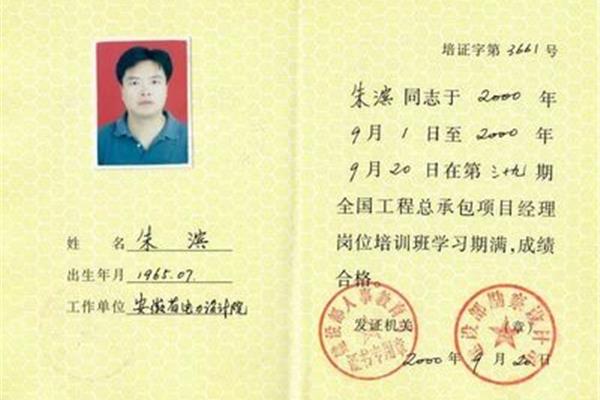 姓 名 朱 滨
出生年月 1965.07.
工作单位 安徽省电力设计院
培证字第 3661 号
朱滨 同志于 2000 年
9 月 1 日至 2000 年
9 月 20 日在第 三十九 期
全国工程总承包项目经理
岗位培训班学习期满,成绩
合格。
发证机关 (章)
2000 年 9 月 20 日
建设部人事教育
证书专用章
建设部勘察设计